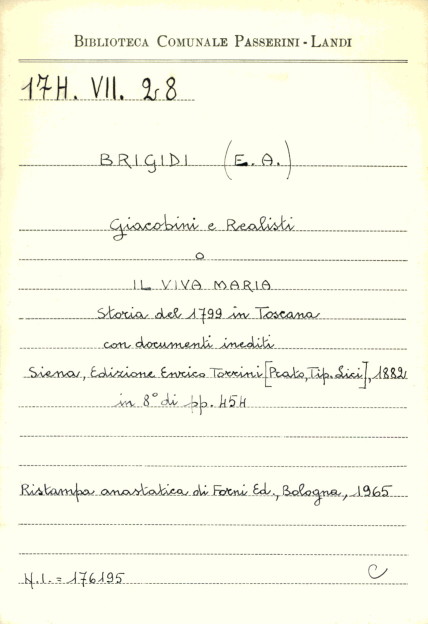 BIBLIOTECA COMUNALE PASSERINI-LANDI
17H. VII. 28
BRIGIDI (E. A.)
Giacobini e Realisti
o
IL VIVA MARIA
Storia del 1799 in Toscana
con documenti inediti
Siena, Edizione Enrico Torrini [Prato, Tip. Lici], 1882
in 8° di pp. 454
Ristampa anastatica di Forni Ed., Bologna, 1965
N.I. = 176195
C